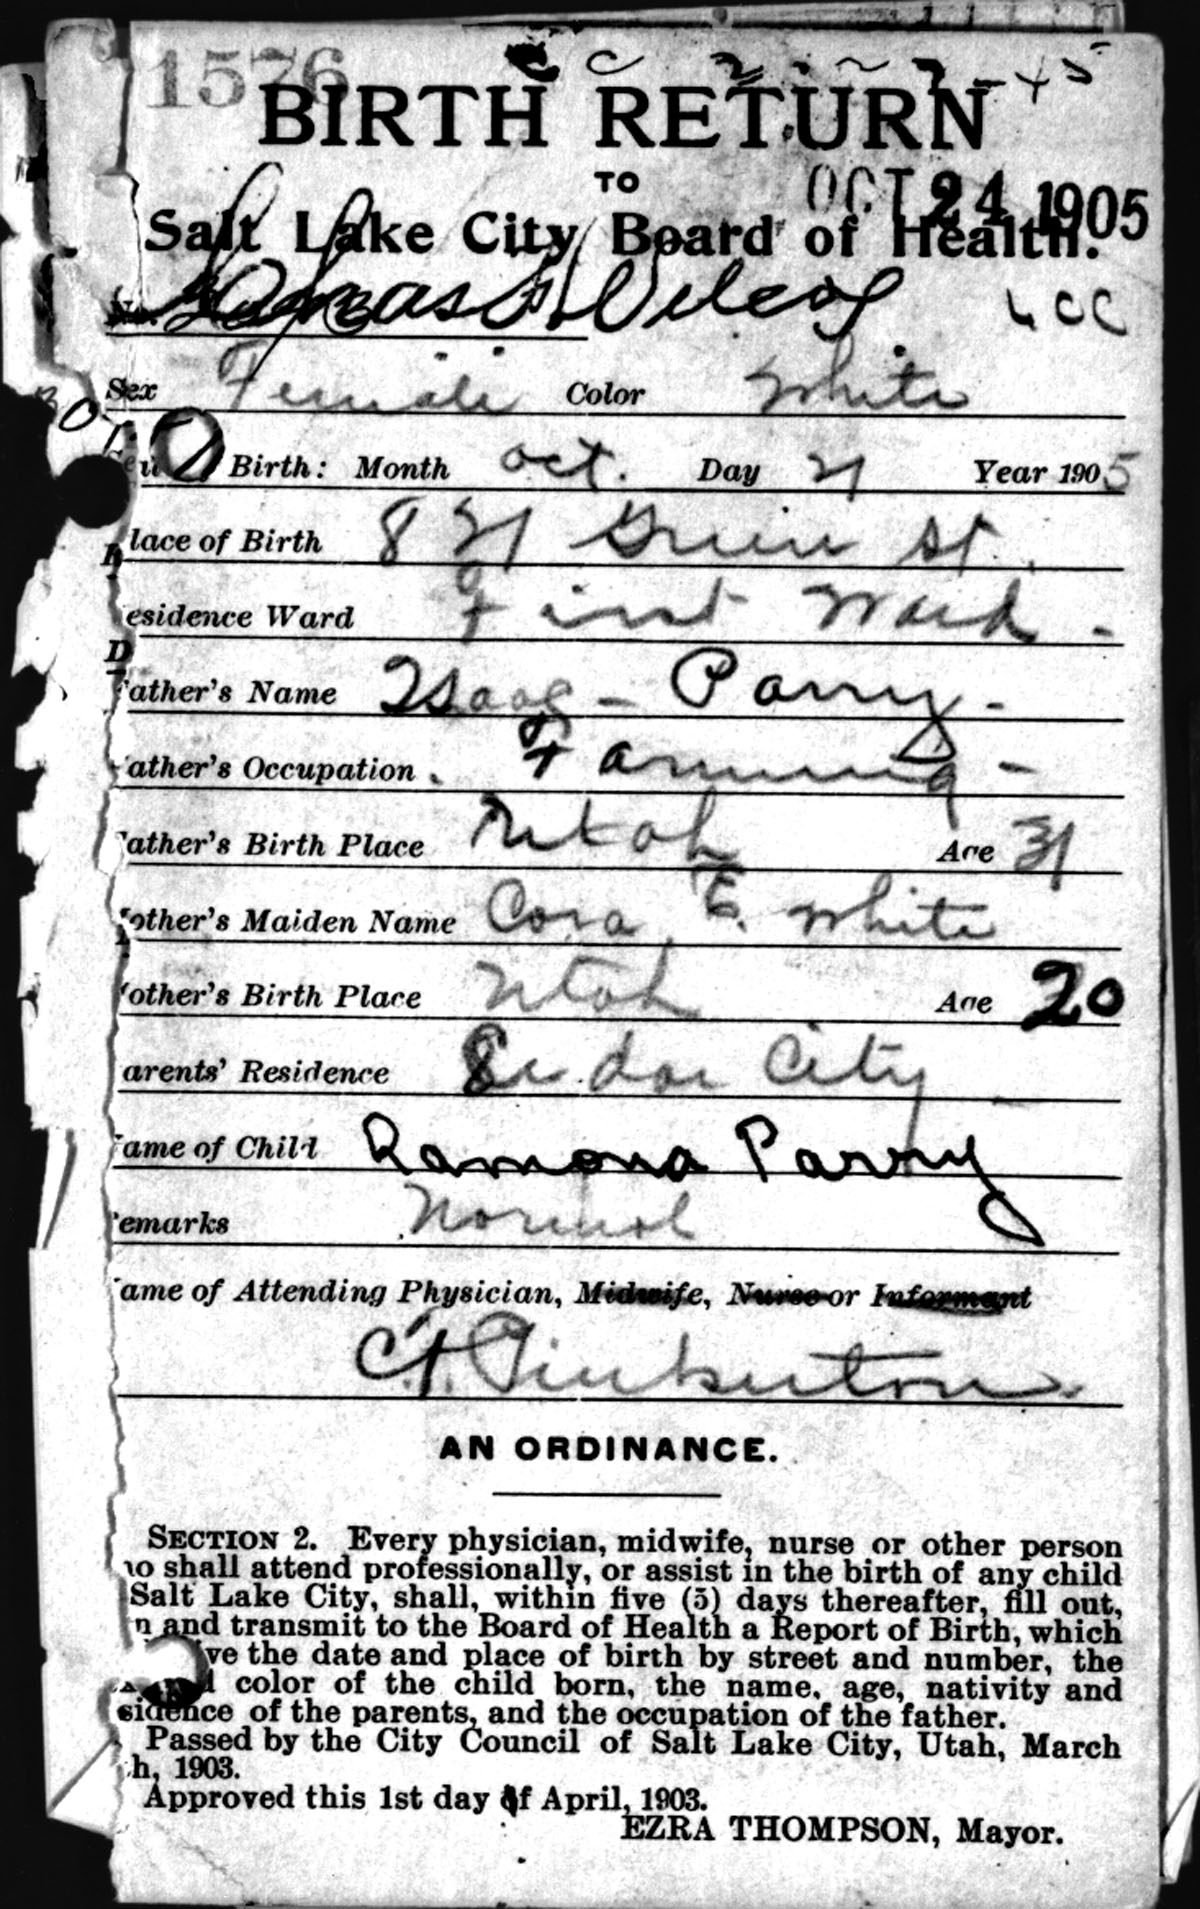 1576
BIRTH RETURN
TO
OCT 24 1905
Salt Lake City Board of Health.
No. Chas. S. Wilcox
Sex Female Color White
Birth: Month Oct. Day 21 Year 1905
lace of Birth 821 Green St.
esidence Ward First Ward -
ather's Name Isaac - Parry -
ather's Occupation . Farming -
ather's Birth Place Utah Age 31
other's Maiden Name Cora E. White
other's Birth Place Utah Age 20
arents' Residence Cedar City
ame of Child Ramona Parry
emarks Normal
ame of Attending Physician, Midwife, Nurse or Informant
Pinkerton
AN ORDINANCE.
SECTION 2. Every physician, midwife, nurse or other person
ho shall attend professionally, or assist in the birth of any child
Salt Lake City, shall, within five (5) days thereafter, fill out,
n and transmit to the Board of Health a Report of Birth, which
ve the date and place of birth by street and number, the
color of the child born, the name, age, nativity and
sidence of the parents, and the occupation of the father.
Passed by the City Council of Salt Lake City, Utah, March
h, 1903.
Approved this 1st day of April, 1903.
EZRA THOMPSON, Mayor.